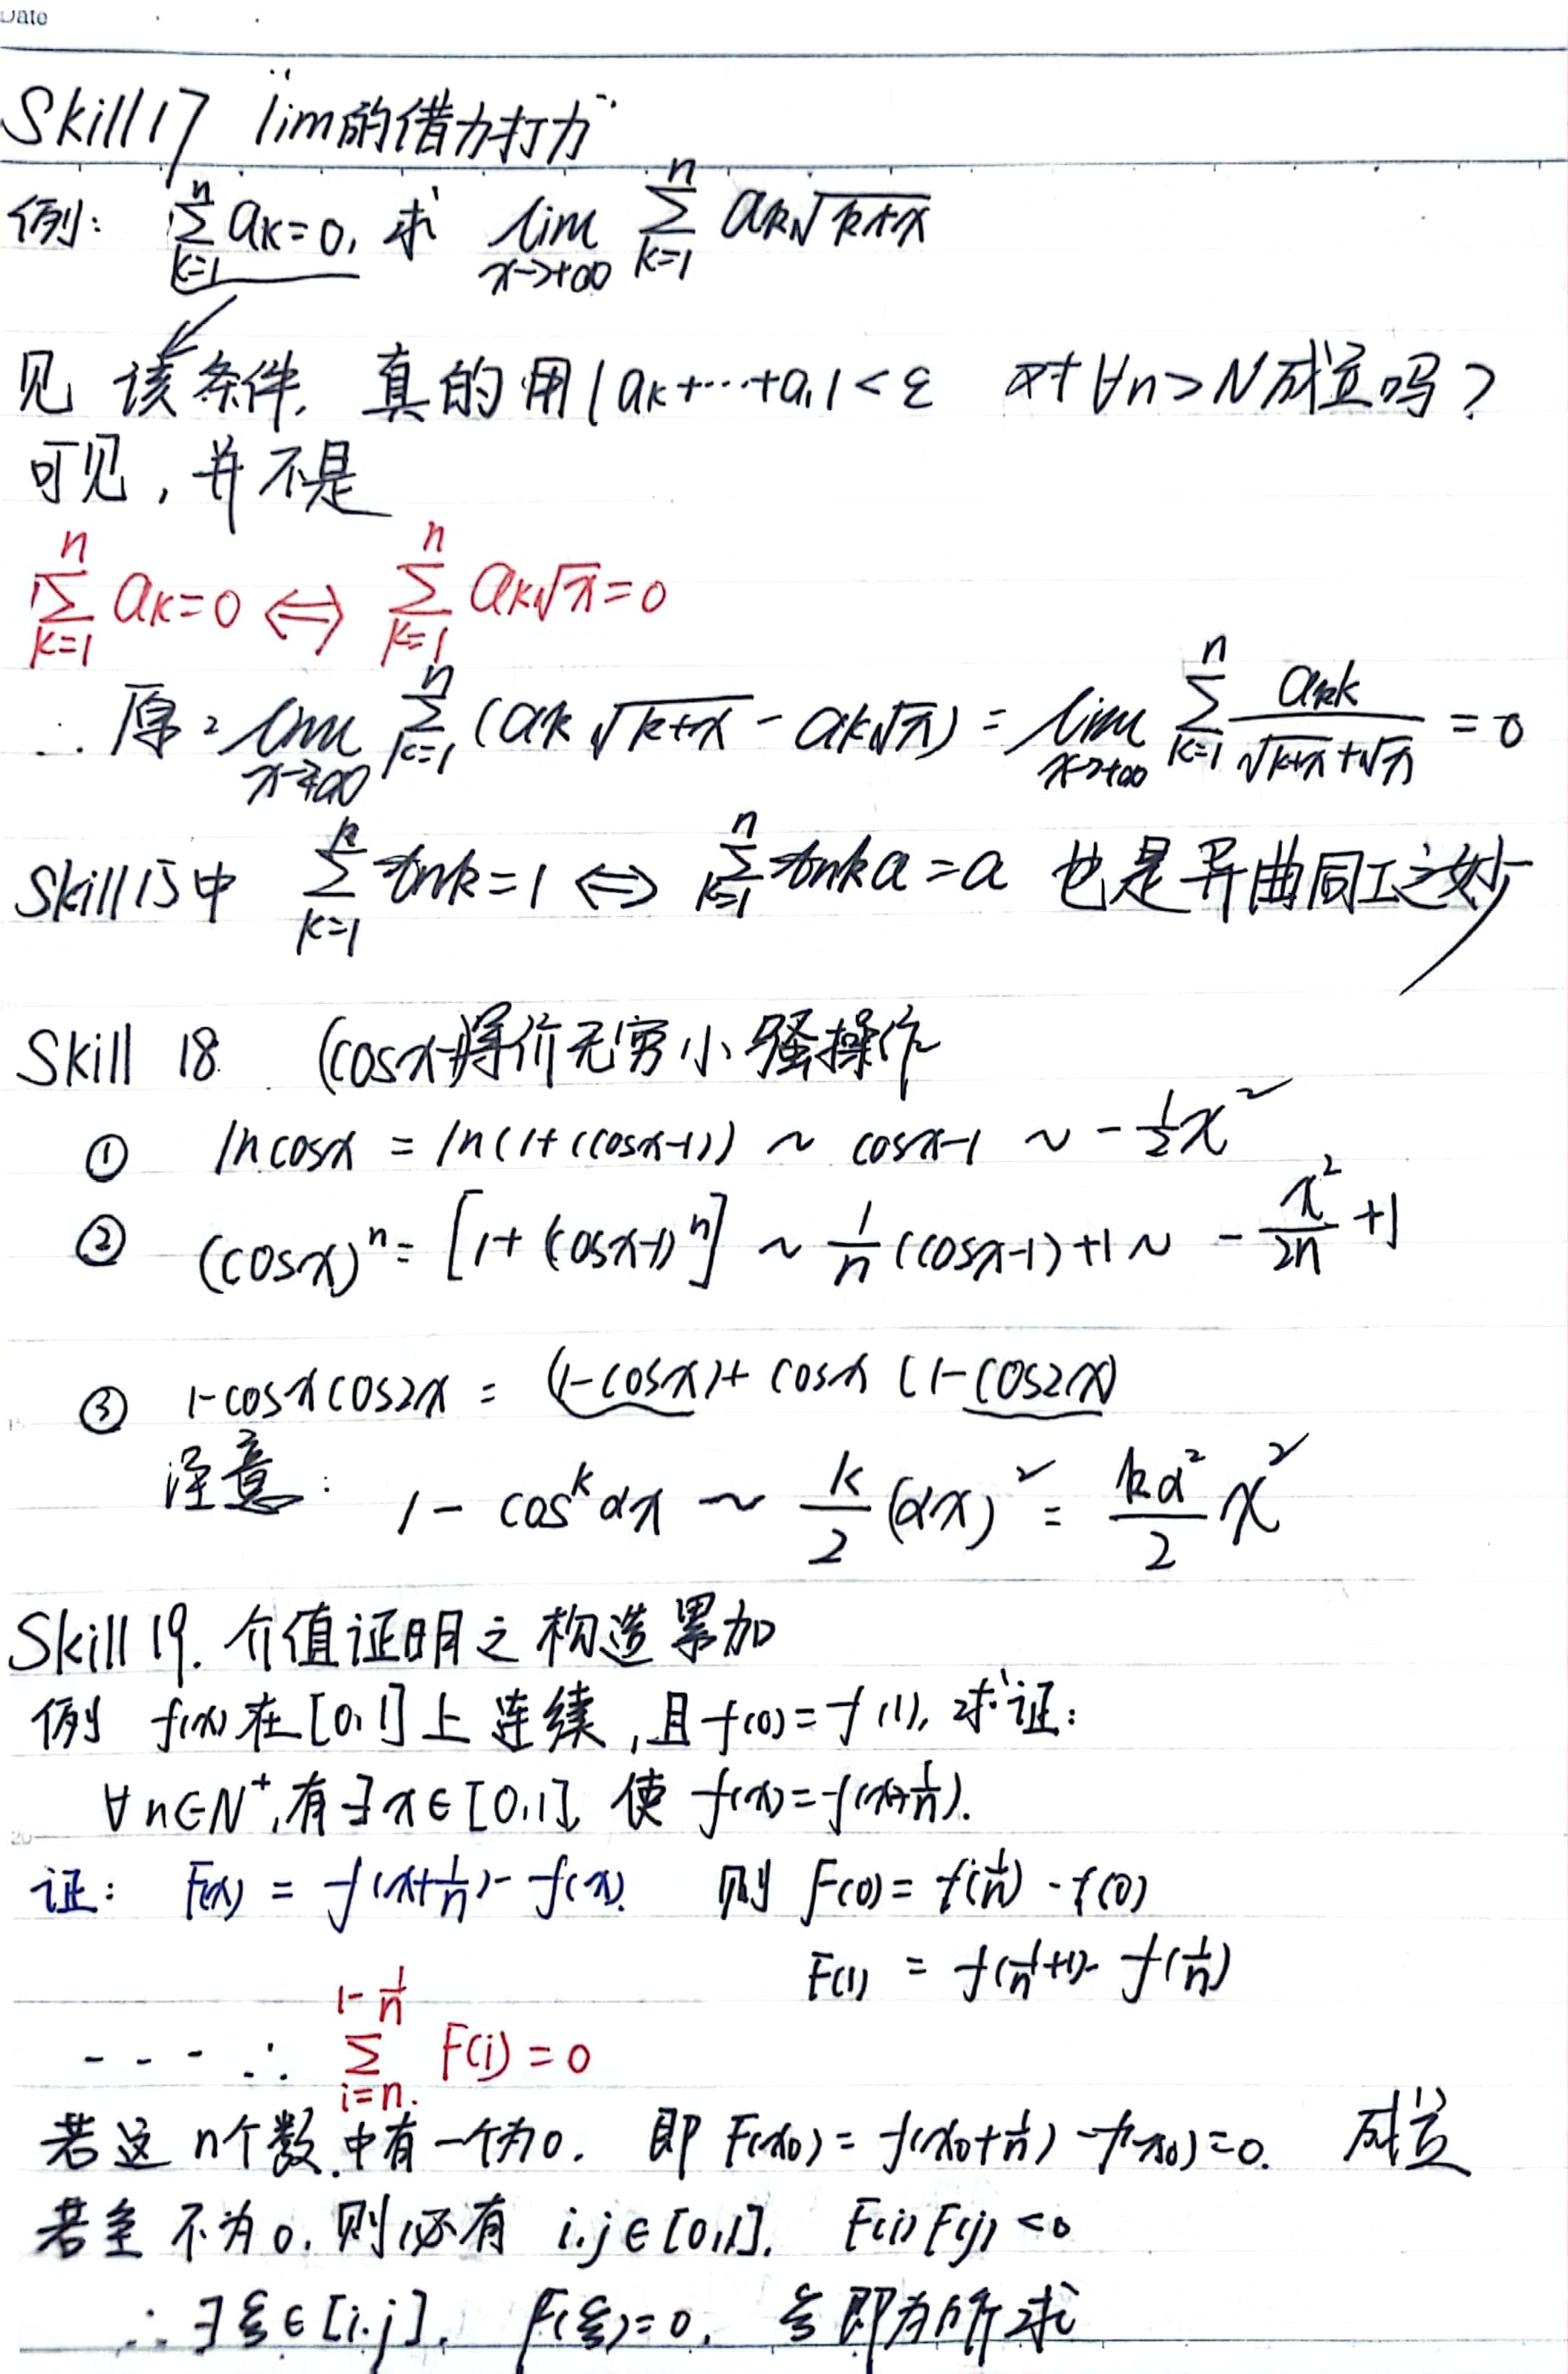 Date
Skill 17 lim的"借力打力"
例: ∑_{k=1}^{n} a_k=0, 求 lim_{x→+∞} ∑_{k=1}^{n} a_k√(k+x)
见 该条件, 真的用|a_k+…+a_1|<ε 对∀n>N成立吗?
可见, 并不是
∑_{k=1}^{n} a_k=0 ⇔ ∑_{k=1}^{n} a_k√x=0
∴ 原=lim_{x→+∞} ∑_{k=1}^{n} (a_k√(k+x) - a_k√x) = lim_{x→+∞} ∑_{k=1}^{n} a_k k/(√(k+x)+√x) = 0
Skill 15中 ∑_{k=1}^{n} t_{nk}=1 ⇔ ∑_{k=1}^{n} t_{nk}a=a 也是异曲同工之妙
Skill 18. (cosx-1)等价无穷小骚操作
① lncosx = ln(1+(cosx-1)) ~ cosx-1 ~ -1/2 x²
② (cosx)^n = [1+(cosx-1)^n] ~ 1/n (cosx-1)+1 ~ -x²/2n +1
③ 1-cosxcos2x = (1-cosx)+cosx(1-cos2x)
注意: 1-cos^k αx ~ k/2 (αx)² = kα²/2 x²
Skill 19. 介值证明之构造累加
例 f(x)在[0,1]上连续,且f(0)=f(1),求证:
∀n∈N⁺,有∃x∈[0,1],使 f(x)=f(x+1/n).
证: F(x) = f(x+1/n)-f(x). 则 F(0)=f(1/n)-f(0)
F(1) = f(1/n+1)-f(1/n)
---- ∴ ∑_{i=n.}^{1-1/n} F(i)=0
若这n个数.中有一个为0. 即 F(x₀)=f(x₀+1/n)-f(x₀)=0. 成立
若全不为0.则必有 i.j∈[0,1]. F(i)F(j)<0
∴ ∃ξ∈[i.j]. F(ξ)=0. ξ即为所求